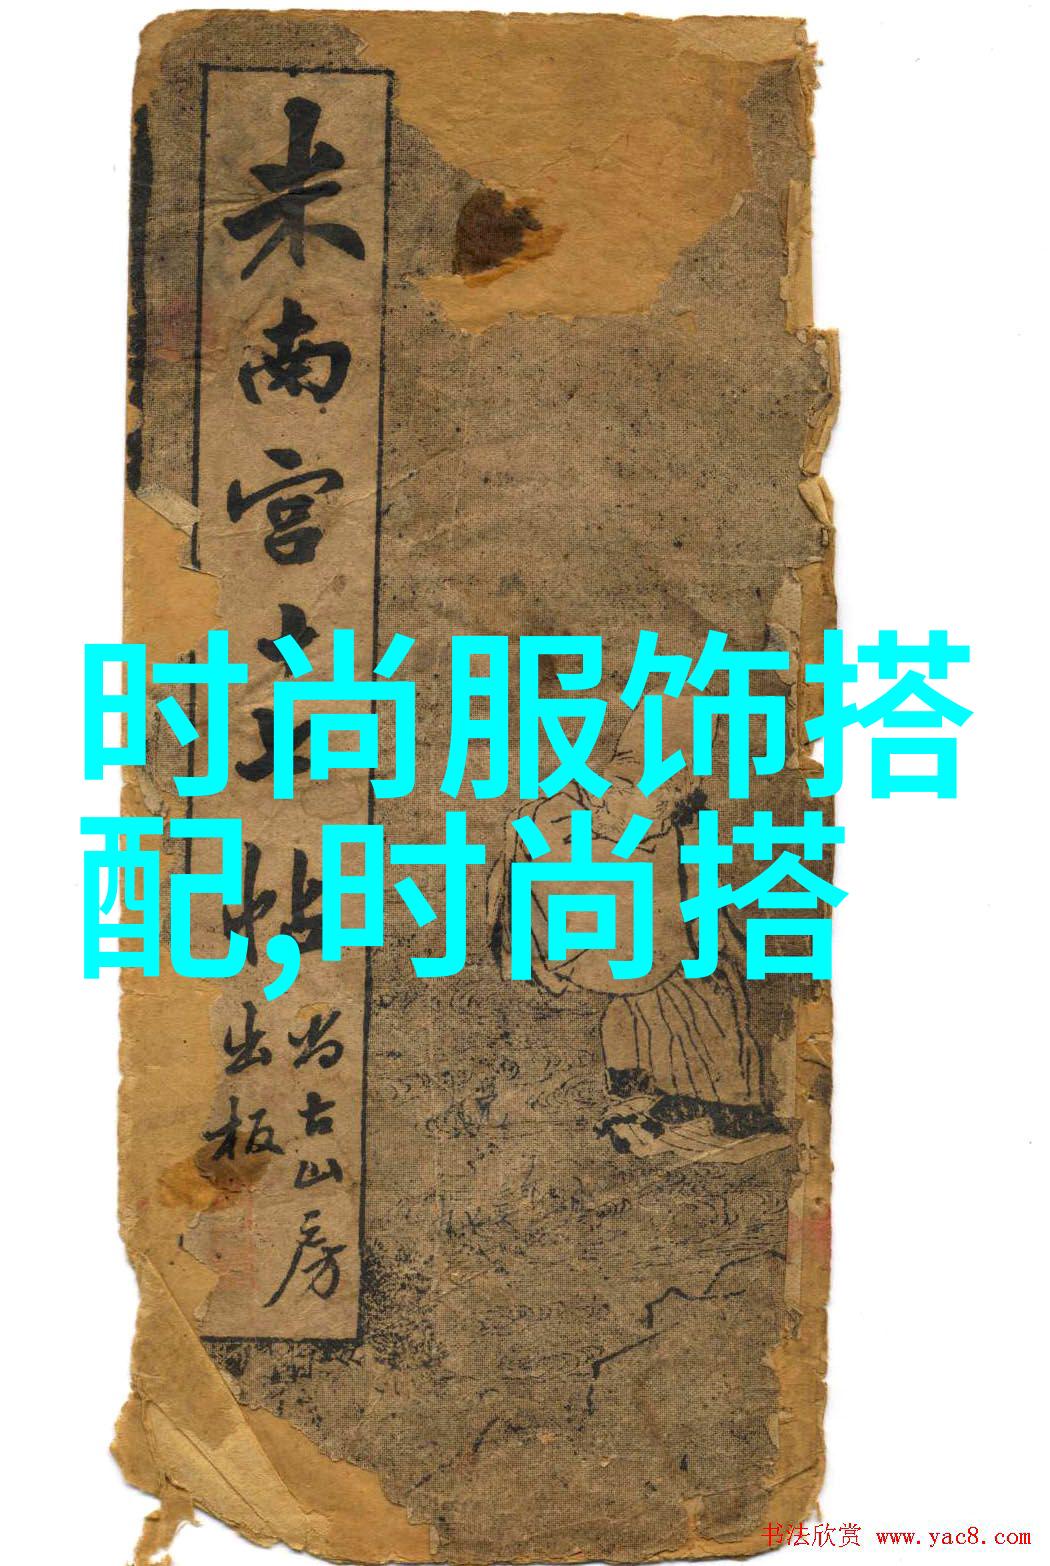 米南宫
帖
尚古山房
出板
时尚服饰搭
配,时尚搭
书法欣赏 www.yac8.com